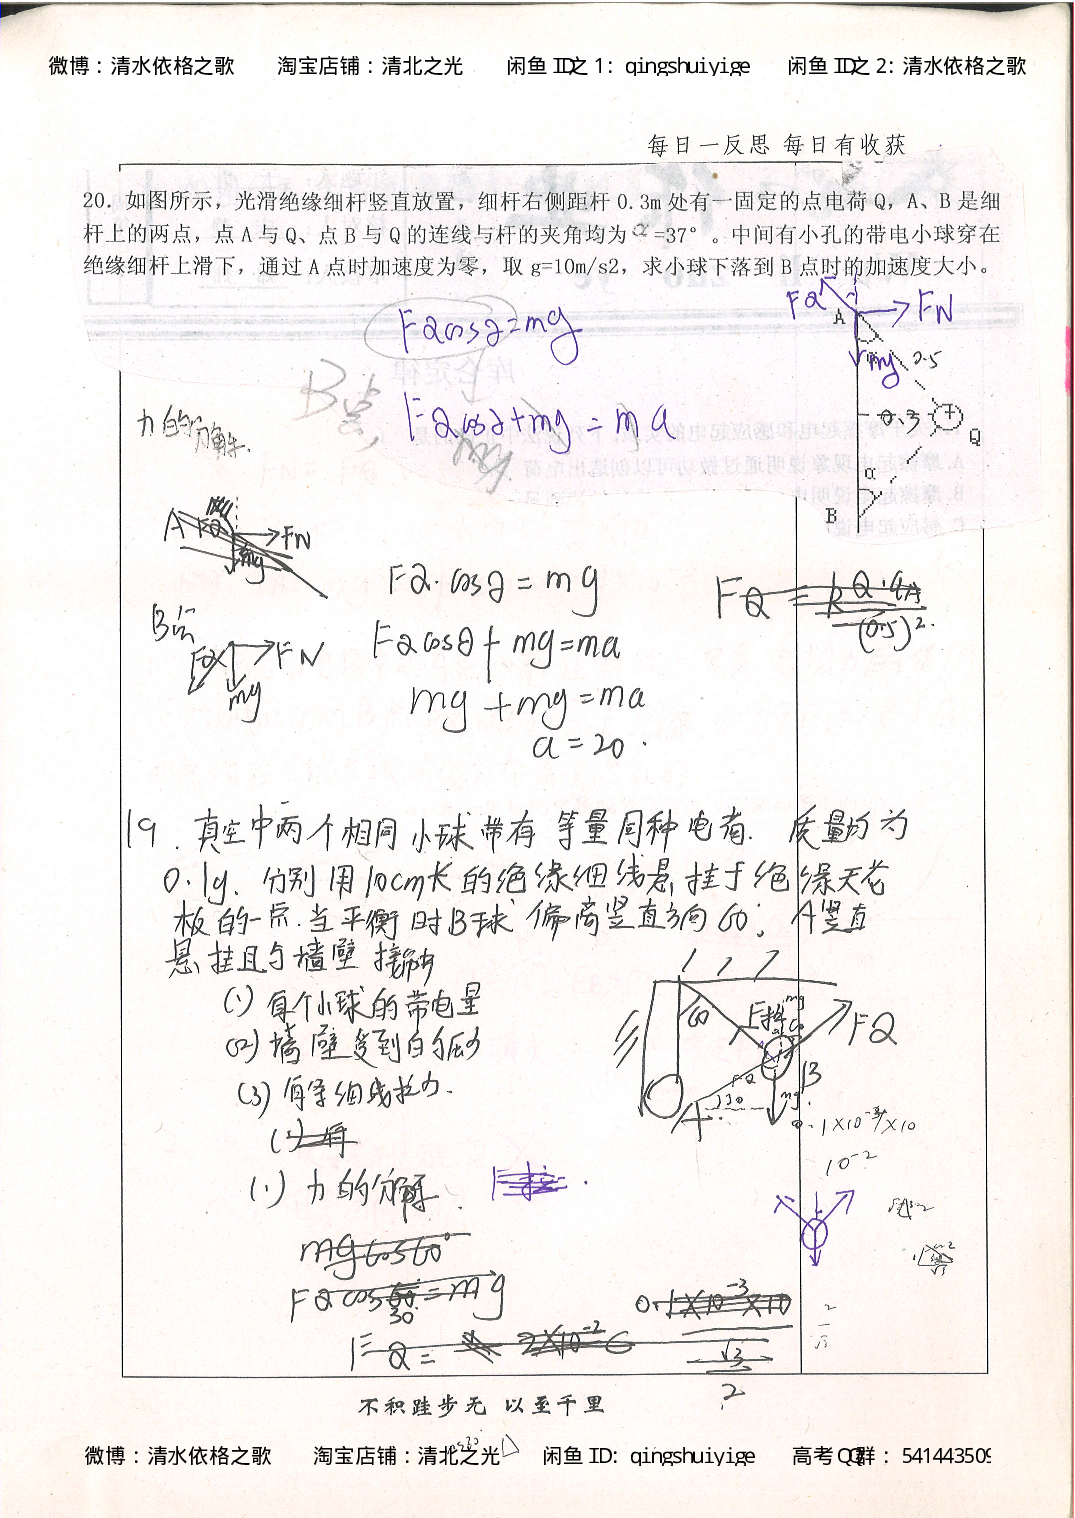 微博：清水依格之歌 淘宝店铺：清北之光 闲鱼 ID之 1：qingshuiyige 闲鱼 ID之 2：清水依格之歌
每日一反思 每日有收获
20．如图所示，光滑绝缘细杆竖直放置，细杆右侧距杆 0.3m 处有一固定的点电荷 Q，A、B 是细
杆上的两点，点 A 与 Q、点 B 与 Q 的连线与杆的夹角均为 α =37°。中间有小孔的带电小球穿在
绝缘细杆上滑下，通过 A 点时加速度为零，取 g=10m/s2，求小球下落到 B 点时的加速度大小。
FQ
FN
A
mg
0.5
0.3
+
Q
α
B
FQcos∂=mg
B点
FQcos∂+mg=ma
mg
力的分解.
A FQ FN
mg
FQ·cos∂=mg
B点
FQ FN
mg
FQcos∂+mg=ma
mg+mg=ma
a=20.
19. 真空中两个相同小球带有等量同种电荷. 质量均为
0.1g. 分别用10cm长的绝缘细线悬挂于绝缘天花
板的一点.当平衡时B球偏离竖直方向60°, A竖直
悬挂且与墙壁接触
(1) 每个小球的带电量
(2) 墙壁受到的压力
(3) 每条细线拉力.
60
F拉
FQ
B
FQ
30
mg
A
0.1×10⁻³×10
10⁻²
(1) 力的分解
mgcos60°
FQcos30=mg
FQ=
0.1×10⁻³×10
√3
2
不积跬步无 以至千里
微博：清水依格之歌 淘宝店铺：清北之光 闲鱼 ID：qingshuiyige 高考QQ群：541443509